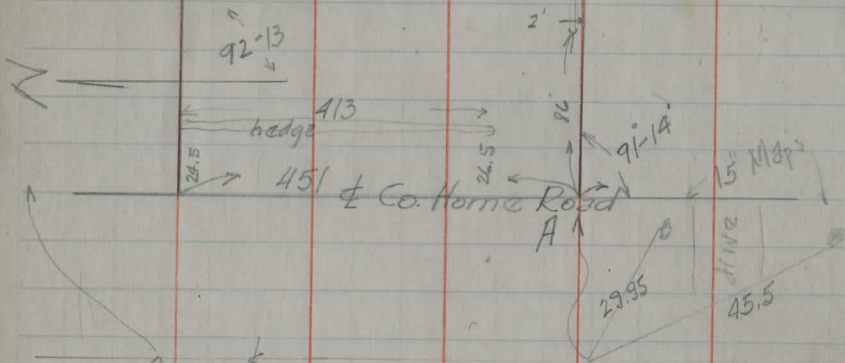 2'
92-13
413
hedge
86'
91°-14'
24.5
26.5
15" Map's
451
℄ Co. Home Road
A
drive
29.95
45.5